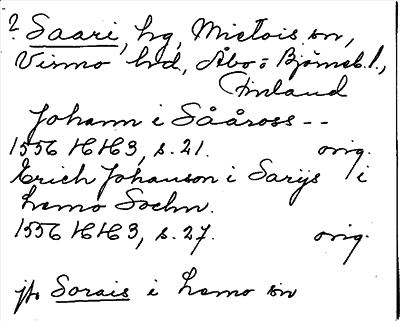 ? Saari, hg, Mietois sn,
Virmo hd, Åbo o Björneb. l.,
Finland
Johann i Sååross --
1556 HH3, s. 21. orig.
Erich Johanson i Sarijs i
Lemo Sochn.
1556 HH3, s. 27. orig.
jfr Sorais i Lemo sn